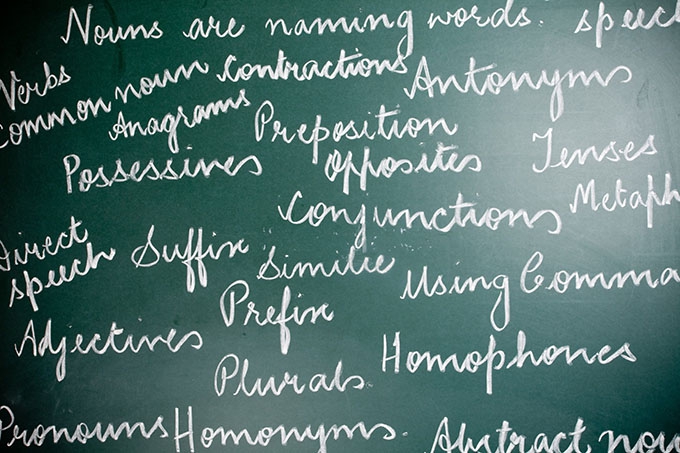 Nouns are naming words. speech
Verbs
Common noun Contractions Antonyms
Anagrams Preposition
Possessives Opposites Tenses
Conjunctions Metaph
Direct
speech Suffix Similie Using Comma
Prefix
Adjectives Homophones
Plurals
Pronouns Homonyms. Abstract nou